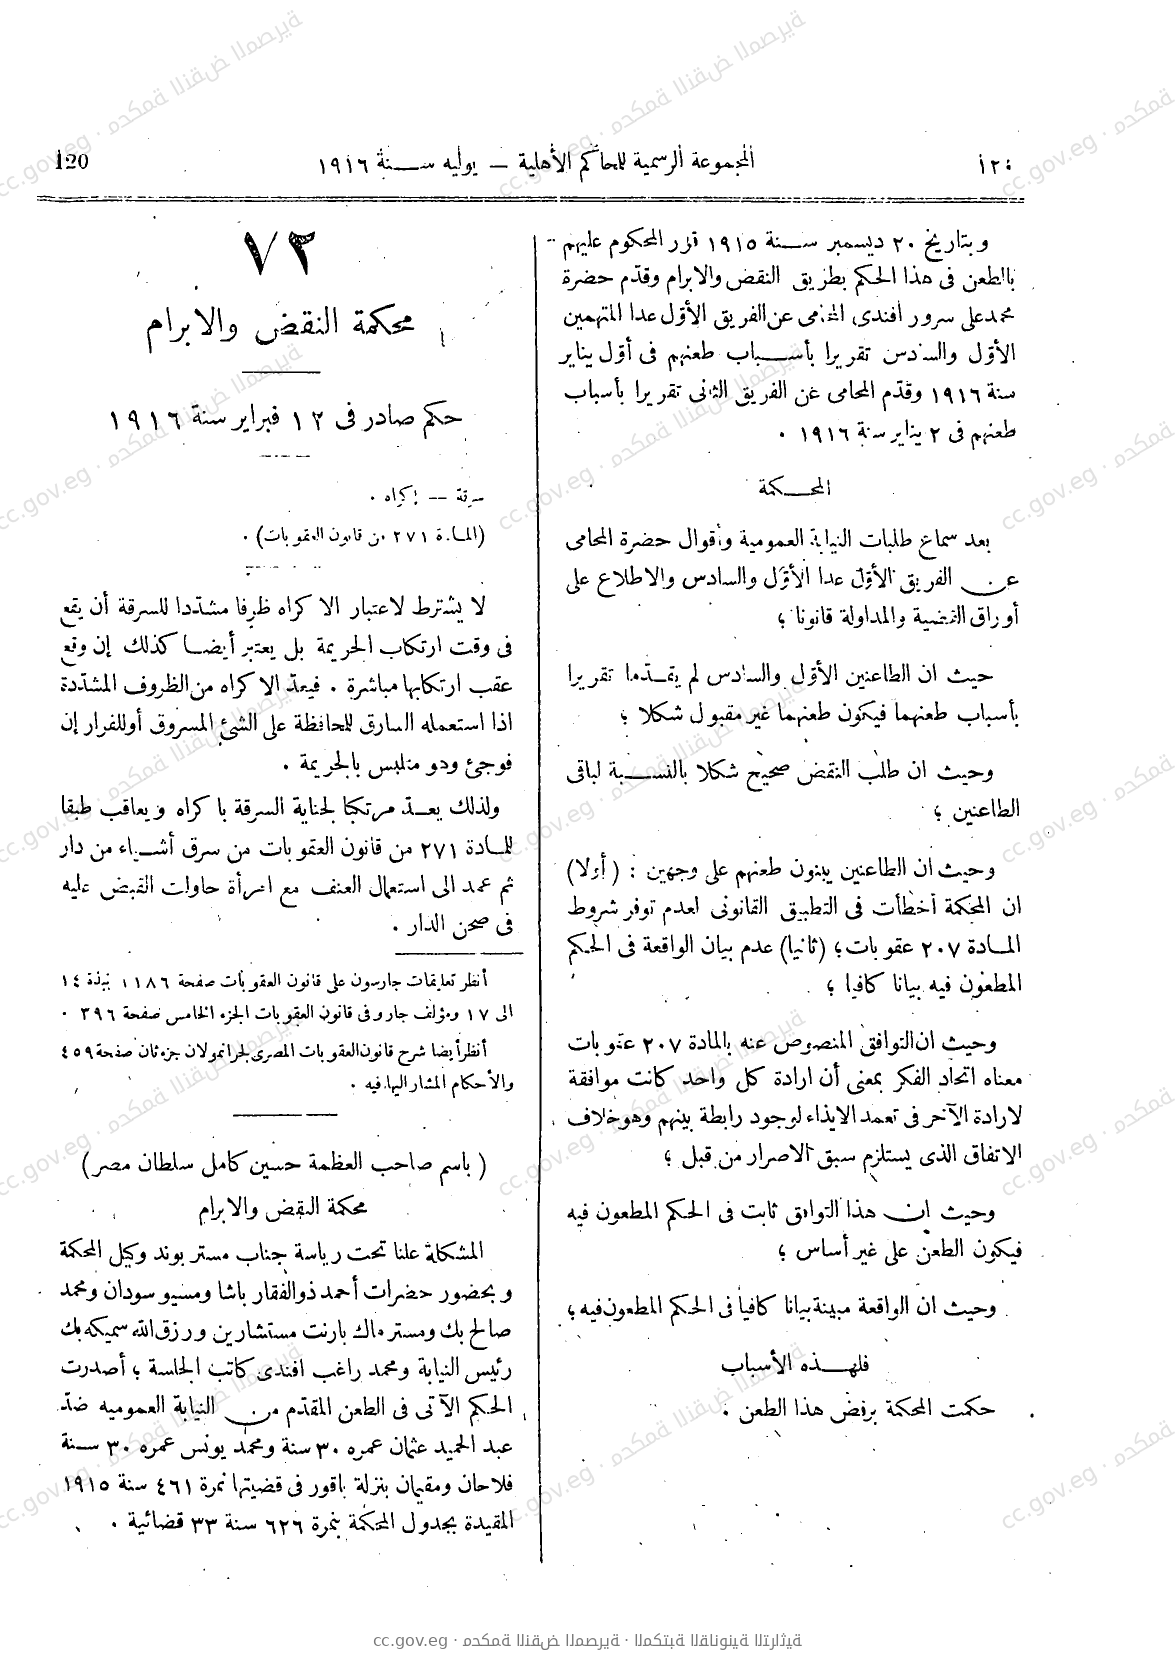 ١٢٠
المجموعة الرسمية للمحاكم الأهلية — يوليه سنة ١٩١٦
120
وبتاريخ ٢٠ ديسمبر سنة ١٩١٥ قرر المحكوم عليهم
بالطعن فى هذا الحكم بطريق النقض والابرام وقدّم حضرة
محمد على سرور أفندى المحامى عن الفريق الأوّل عدا المتهمين
الأوّل والسادس تقريرا بأسباب طعنهم فى أوّل يناير
سنة ١٩١٦ وقدّم المحامى عن الفريق الثانى تقريرا بأسباب
طعنهم فى ٢ يناير سنة ١٩١٦ .
المحكمة
بعد سماع طلبات النيابة العمومية وأقوال حضرة المحامى
عن الفريق الأوّل عدا الأوّل والسادس والاطلاع على
أوراق القضية والمداولة قانونا ؛
حيث ان الطاعنين الأوّل والسادس لم يقدّما تقريرا
بأسباب طعنهما فيكون طعنهما غير مقبول شكلا ؛
وحيث ان طلب النقض صحيح شكلا بالنسبة لباقى
الطاعنين ؛
وحيث ان الطاعنين يبنون طعنهم على وجهين : (أوّلا)
ان المحكمة أخطأت فى التطبيق القانونى لعدم توفر شروط
المادة ٢٠٧ عقوبات ؛ (ثانيا) عدم بيان الواقعة فى الحكم
المطعون فيه بيانا كافيا ؛
وحيث ان التوافق المنصوص عنه بالمادة ٢٠٧ عقوبات
معناه اتحاد الفكر بمعنى أن ارادة كل واحد كانت موافقة
لارادة الآخر فى تعمد الايذاء لوجود رابطة بينهم وهو خلاف
الاتفاق الذى يستلزم سبق الاصرار من قبل ؛
وحيث ان هذا التوافق ثابت فى الحكم المطعون فيه
فيكون الطعن على غير أساس ؛
وحيث ان الواقعة مبينة بيانا كافيا فى الحكم المطعون فيه ؛
فلهذه الأسباب
حكمت المحكمة برفض هذا الطعن .
٧٣
محكمة النقض والابرام
حكم صادر فى ١٢ فبراير سنة ١٩١٦
سرقة — إكراه .
(المادة ٢٧١ من قانون العقوبات) .
لا يشترط لاعتبار الاكراه ظرفا مشدّدا للسرقة أن يقع
فى وقت ارتكاب الجريمة بل يعتبر أيضا كذلك إن وقع
عقب ارتكابها مباشرة . فيعدّ الاكراه من الظروف المشدّدة
اذا استعمله السارق للمحافظة على الشئ المسروق أو للفرار إن
فوجئ وهو متلبس بالجريمة .
ولذلك يعدّ مرتكبا لجناية السرقة باكراه ويعاقب طبقا
للمادة ٢٧١ من قانون العقوبات من سرق أشياء من دار
ثم عمد الى استعمال العنف مع امرأة حاولت القبض عليه
فى صحن الدار .
أنظر تعليقات جارسون على قانون العقوبات صفحة ١١٨٦ نبذة ١٤
الى ١٧ ومؤلف جارو فى قانون العقوبات الجزء الخامس صفحة ٣٩٦ .
أنظر أيضا شرح قانون العقوبات المصرى لجرانمولان جزء ثان صفحة ٤٥٩
والأحكام المشار اليها فيه .
( باسم صاحب العظمة حسين كامل سلطان مصر)
محكمة النقض والابرام
المشكلة علنا تحت رياسة جناب مستر بوند وكيل المحكمة
وبحضور حضرات أحمد ذو الفقار باشا ومسيو سودان ومحمد
صالح بك ومستر ماك بارنت مستشارين ورزق الله سميكه بك
رئيس النيابة ومحمد راغب افندى كاتب الجلسة ؛ أصدرت
الحكم الآتى فى الطعن المقدّم من النيابة العموميه ضدّ
عبد الحميد عثمان عمره ٣٠ سنة ومحمد يونس عمره ٣٠ سنة
فلاحان ومقيمان بنزلة باقور فى قضيتها نمرة ٤٦١ سنة ١٩١٥
المقيدة بجدول المحكمة بنمرة ٦٢٦ سنة ٣٣ قضائية .
cc.gov.eg · محكمة النقض المصرية · المكتبة القانونية التراثية